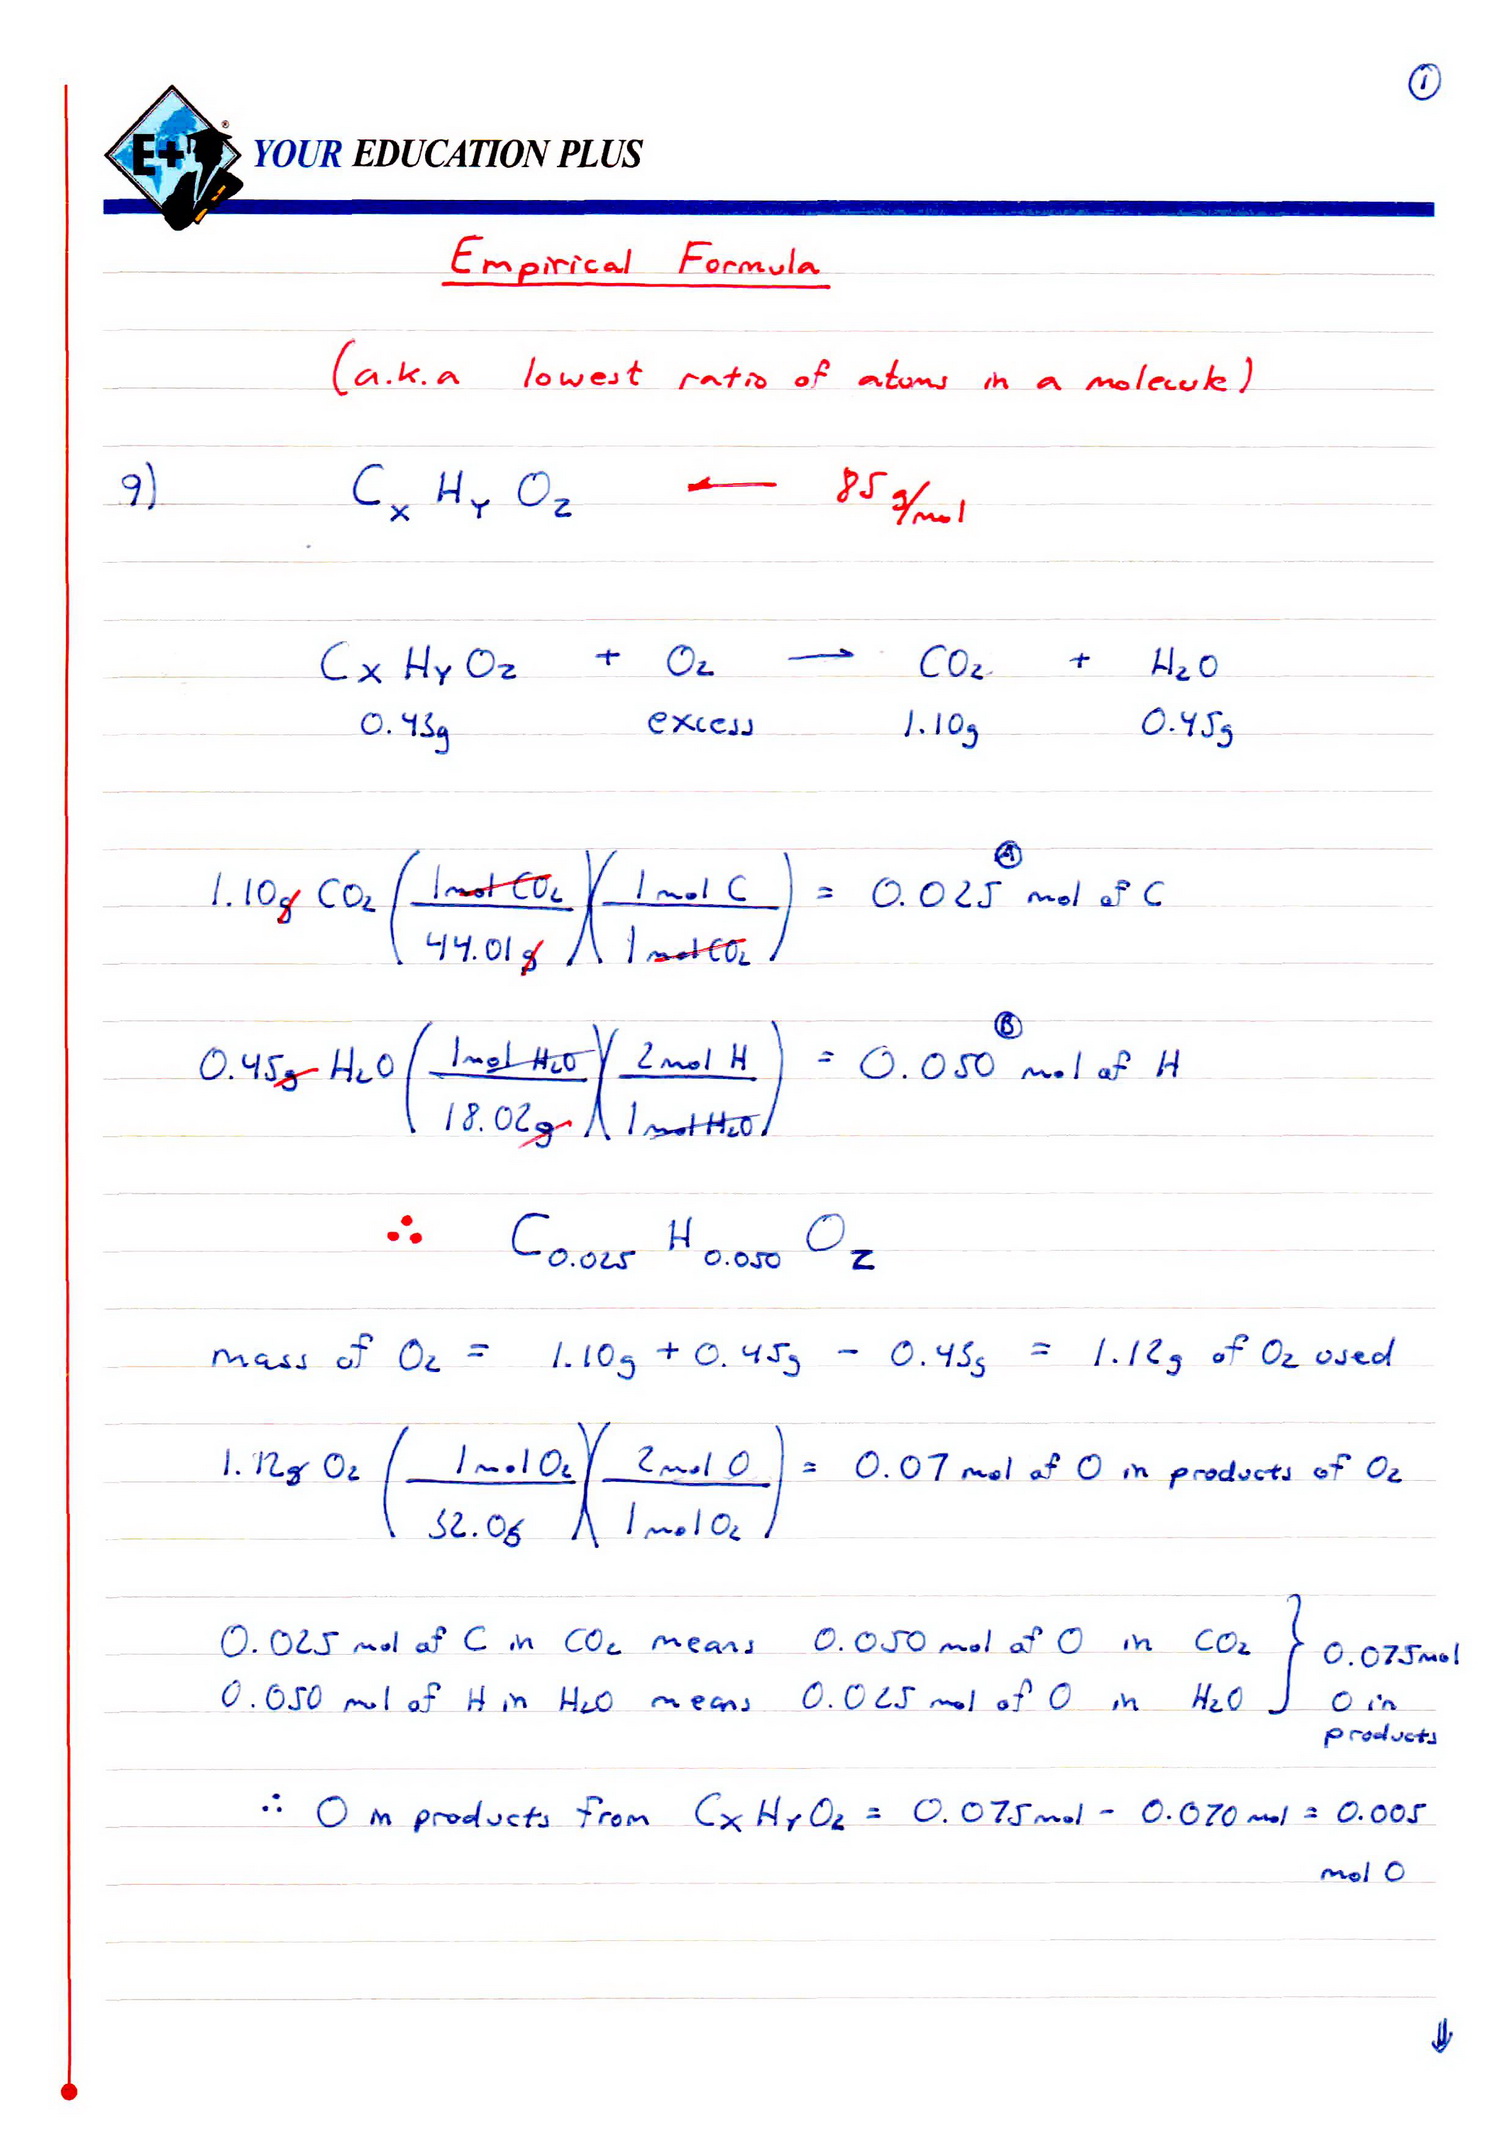 ①
E+® YOUR EDUCATION PLUS
Empirical Formula
(a.k.a lowest ratio of atoms in a molecule)
9) CxHyOz ← 85 g/mol
CxHyOz + O₂ → CO₂ + H₂O
0.43g excess 1.10g 0.45g
1.10g CO₂ (1 mol CO₂ / 44.01g)(1 mol C / 1 mol CO₂) = 0.025 Ⓐ mol of C
0.45g H₂O (1 mol H₂O / 18.02g)(2 mol H / 1 mol H₂O) = 0.050 Ⓑ mol of H
∴ C0.025 H0.050 Oz
mass of O₂ = 1.10g + 0.45g - 0.43g = 1.12g of O₂ used
1.12g O₂ (1 mol O₂ / 32.0g)(2 mol O / 1 mol O₂) = 0.07 mol of O in products of O₂
0.025 mol of C in CO₂ means 0.050 mol of O in CO₂
0.050 mol of H in H₂O means 0.025 mol of O in H₂O
} 0.075 mol
O in
products
∴ O in products from CxHyOz = 0.075 mol - 0.070 mol = 0.005
mol O
⇓